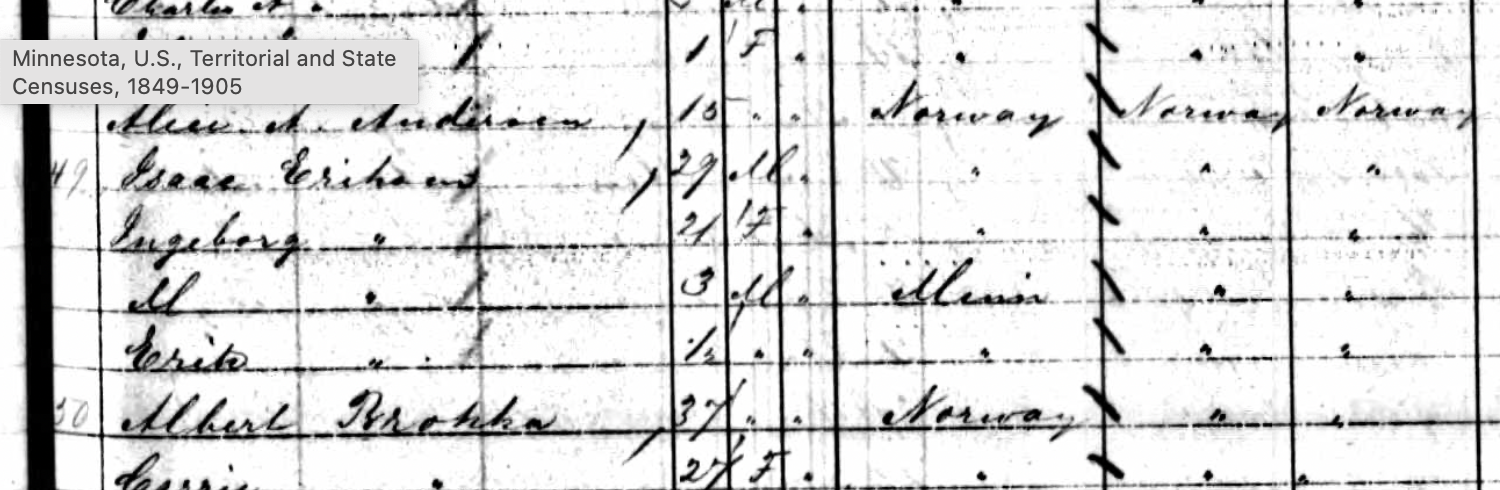 Charles A. "
Minnesota, U.S., Territorial and State
Censuses, 1849-1905
1 F " " " "
Alice A. Anderson, 15 " " Norway Norway Norway
49 Isaac Erikson, 29 M " " " "
Ingeborg " 21 F " " " "
M " 3 M " Minn " "
Erik " 1/2 " " " " "
50 Albert Brokka, 37 " " Norway " "
Carrie " 27 F " " " "